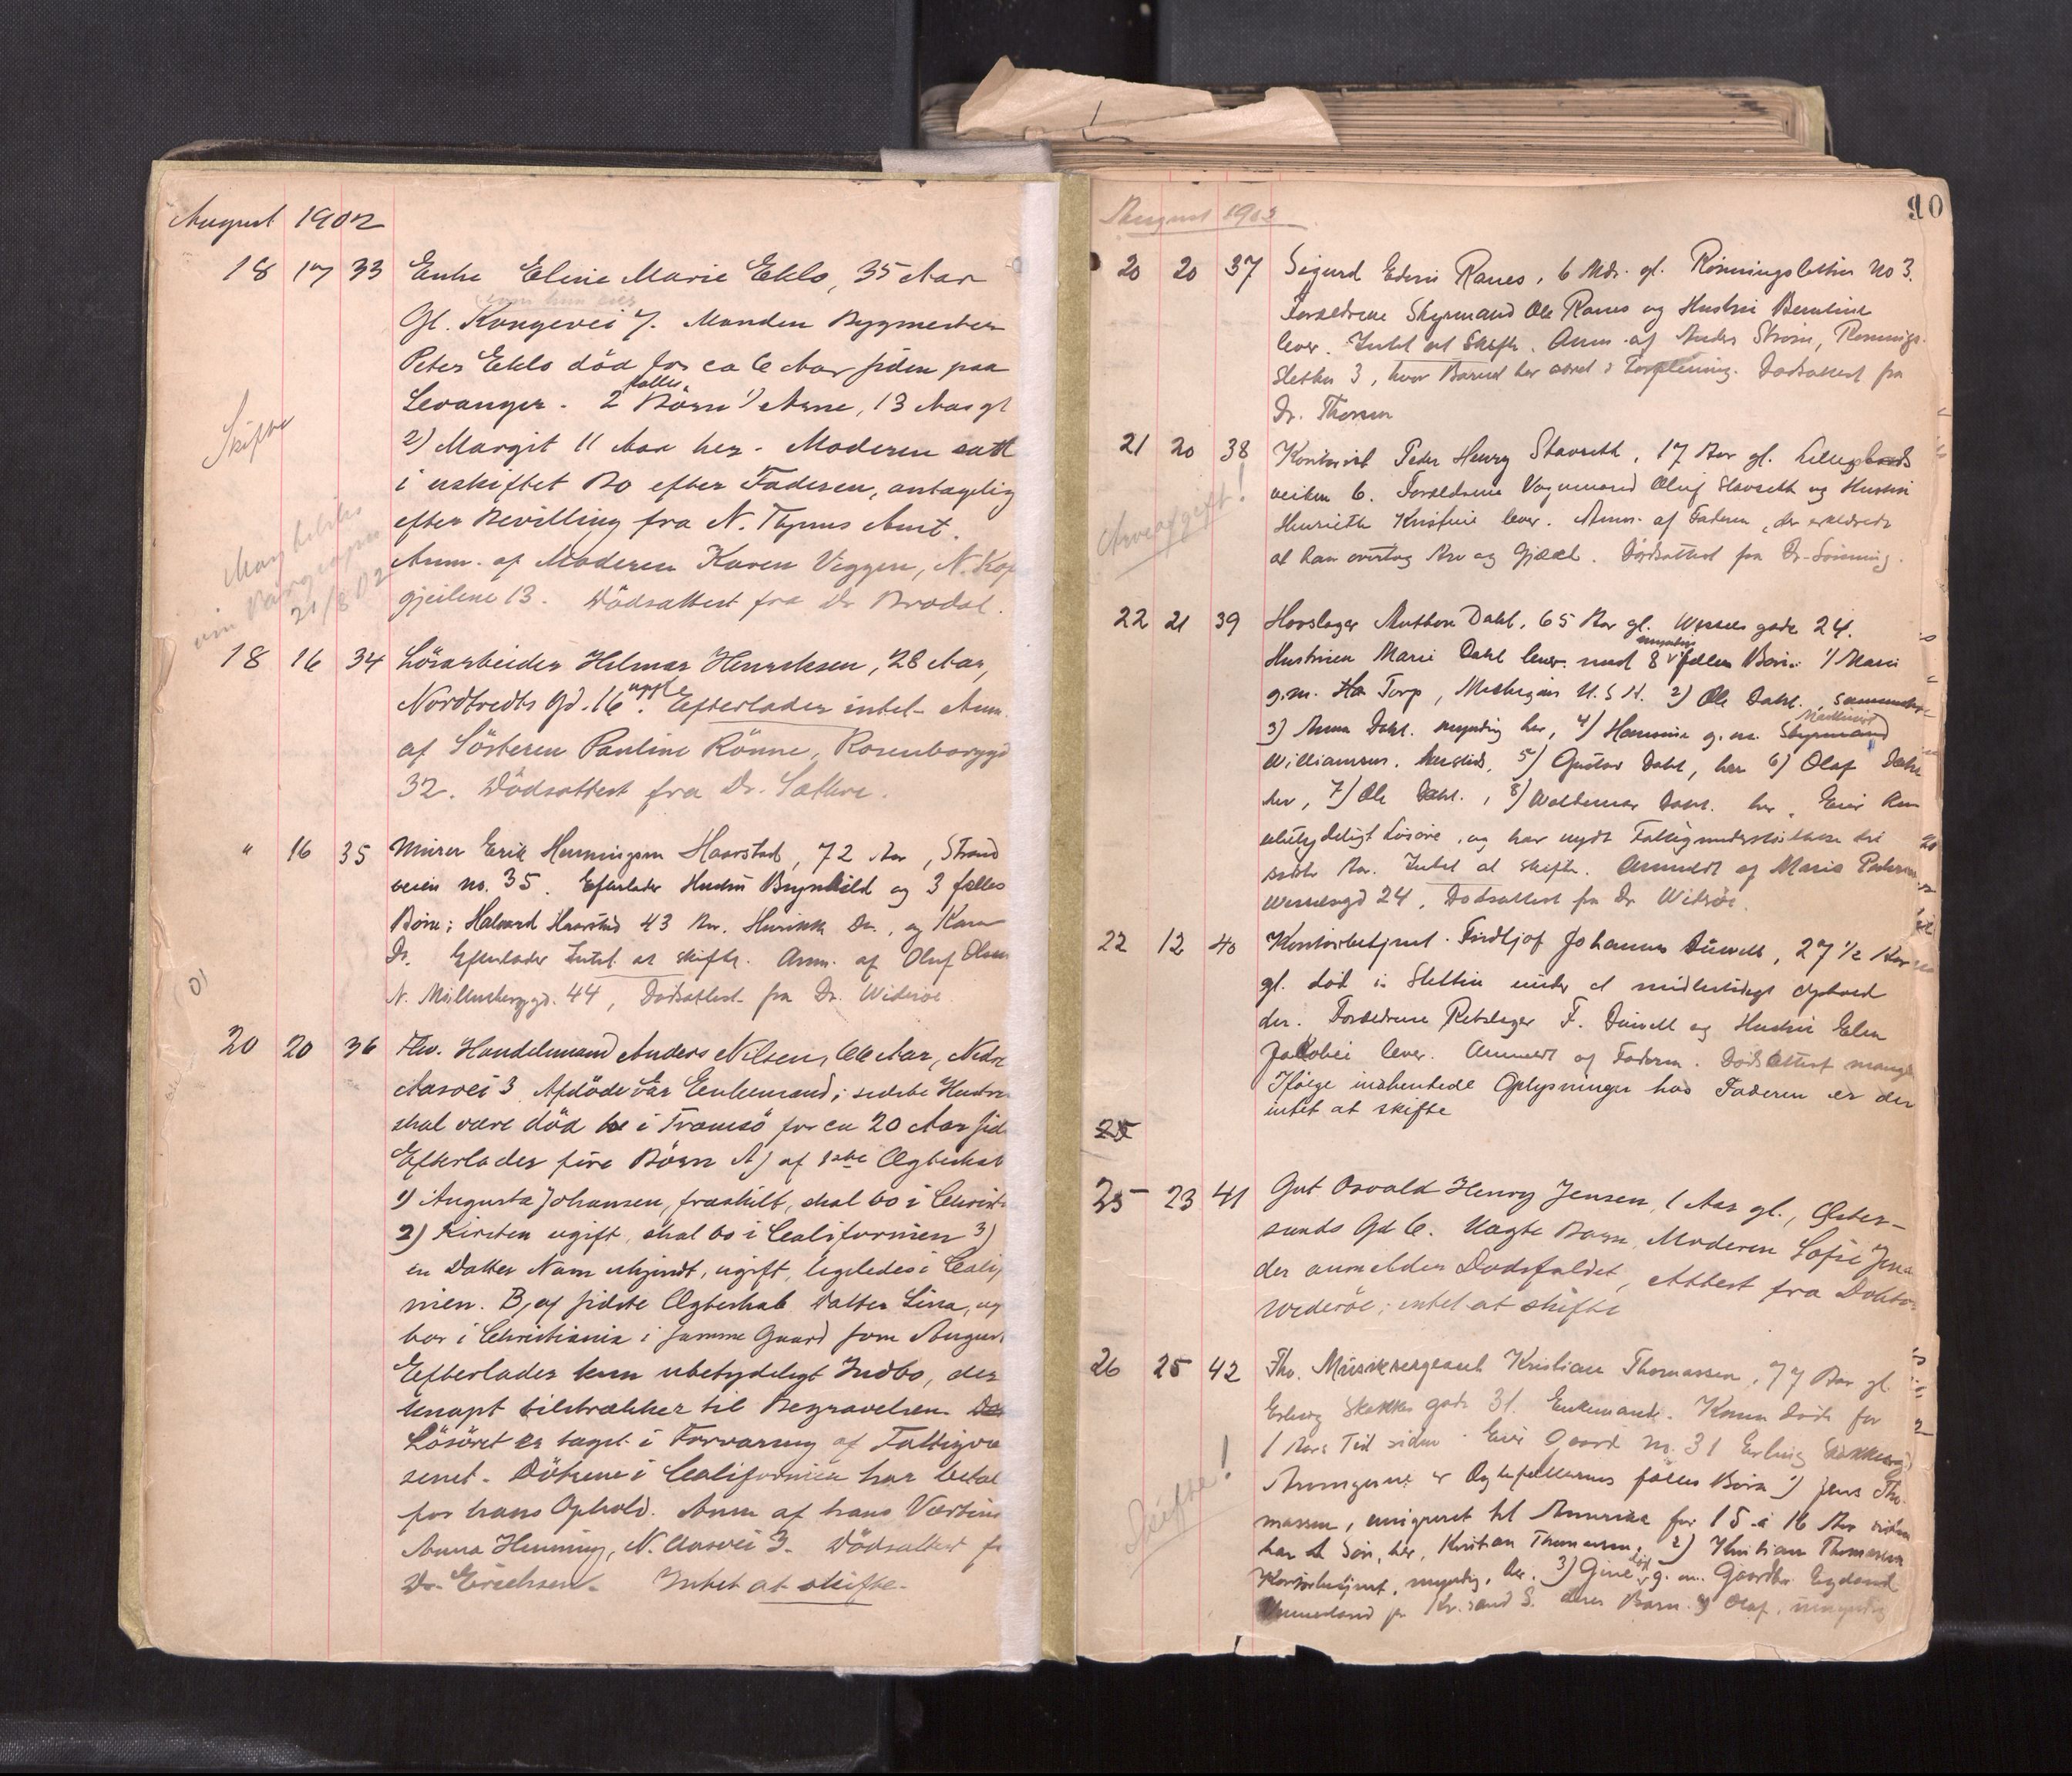 August 1902
18 17 33 Enke Eline Marie Eklo, 35 Aar
Gl. Kongevei 7. Manden Bygmester
Peter Eklo död for ca 6 Aar siden paa
fælles
Levanger. 2 Börn 1) Arne, 13 Aar gl
2) Margit 11 Aar her. Moderen satt
Skifte
i uskiftet Bo efter Faderen, antagelig
efter Bevilling fra N. Thjems Amt.
Anm. af Moderen Karen Viggen, N. Kop
gjeilene 13. Dödsattest fra Dr Brodal.
21/8 02
18 16 34 Lösarbeider Hilmar Henriksen, 28 Aar,
Nordtvedts Gd. 16. ugift Efterlader intet. Anm.
af Sösteren Pauline Rönne, Rosenborggd
32. Dödsattest fra Dr. Sæthre.
" 16 35 Murer Erik Henningsen Haarstad, 72 Aar, Strand
veien no. 35. Efterlader Hustru Brynhild og 3 fælles
Börn: Halvard Haarstad 43 Aar. Henrik Do., og Kara
Do. Efterlader Intet at skifte. Anm. af Oluf Olsen
N. Möllenberggd. 44, Dödsattest fra Dr. Wideröe.
20 20 36 Fhv. Handelsmand Anders Nilsen, 66 Aar, Nedre
Aasvei 3. Afdöde var Enkemand; sidste Hustru
skal være död i Tromsö for ca 20 Aar sid
Efterlader fire Börn A) af 1ste Ægteskab
1) Augusta Johansen, fraskilt, skal bo i Christ
2) Kirsten ugift, skal bo i Californien 3)
en Datter Navn ukjendt, ugift, ligeledes i Calif
nien. B, af sidste Ægteskab Datter Lina, ug
bor i Christiania i samme Gaard som August
Efterlader kun ubetydeligt Indbo, der
knapt tilstrækker til Begravelsen.
Lösöret er taget i Forvaring af Fattigvæ
senet. Dötrene i Californien har betal
for hans Ophold. Anm af hans Værtin
Anna Henning, N. Aasvei 3. Dödsattest f
Dr. Erichsen. Intet at skifte.
August 1902
10
20 20 37 Sigurd Edvin Ranes, 6 Mdr. gl. Rönningsletten No 3.
Forældrene Styrmand Ole Ranes og Hustru Berntine
lever. Intet at Skifte. Anm. af Anders Ström, Rönnings
sletten 3, hvor Barnet har været i Forpleining. Dödsattest fra
Dr. Thorsen
21 20 38 Kontorist Peder Henry Stavseth, 17 Aar gl.
veiten 6. Forældrene Vognmand Oluf Stavseth og Hustru
Henriette Kristine lever. Anm. af Faderen, der erklærede
Arveafgift!
at han overtog Arv og Gjæld. Dödsattest fra Dr.
22 21 39 Hovslager Anthon Dahl, 65 Aar gl. Wessels gade 24.
myndige
Hustruen Marie Dahl lever med 8 fælles Börn: 1) Marie
g.m. Torp, Michigan U.S.A. 2) Ole Dahl, sammesteds
3) Anna Dahl, myndig her, 4) Hannine g.m. Styrmand
Maskinist
Williamsen, hersteds, 5) Gustav Dahl, her 6) Olaf Dahl
her, 7) Ole Dahl, 8) Waldemar Dahl, her. Eier kun
ubetydeligt Lösöre, og har nydt Fattigunderstöttelse det
sidste Aar. Intet at skifte. Anmeldt af Marie Pedersen
Wesselsgd 24, Dödsattest fra Dr Wideröe.
22 12 40 Kontorbetjent Fridtjof Johannes Düwell, 27 1/2 Aar
gl. död i Stettin under et midlertidigt Ophold
der. Forældrene Rebslager F. Düwell og Hustru Elen
Jakobie lever. Anmeldt af Faderen. Dödsattest mangl
Ifölge indhentede Oplysninger hos Faderen er der
intet at skifte
25
25 23 41 Gut Osvald Henry Jensen, 1 Aar gl., Öster-
sunds Gd 6. Uægte Barn. Moderen Sofie Jens
der anmelder Dödsfaldet, Attest fra Doktor
Wideröe; intet at skifte
26 25 42 Fhv. Musiksergeant Kristian Thomassen, 77 Aar gl.
Erling Skakkes gade 31. Enkemand. Konen döde for
1 Aars Tid siden. Eier Gaard No. 31 Erling Skakkesgd
Skifte!
Arvingerne er Ægtefællernes fælles Börn 1) Jens Tho-
massen, emigreret til Amerika for 15 à 16 Aar siden
har en Sön, her, Kristian Thomassen, 2) Kristian Thomassen
Kontorbetjent, myndig, her. 3) Gine död g.m. Gaardbr.
pr Kr.sand S. deres Barn Olaf, umyndig